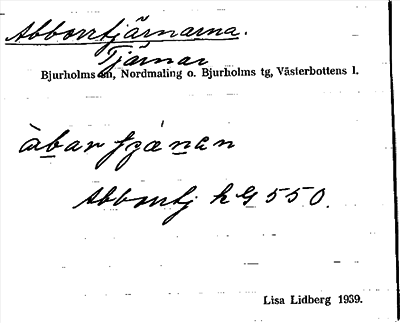 Abborrtjärnarna.
Tjärnar
Bjurholms sn, Nordmaling o. Bjurholms tg, Västerbottens l.
Abborrtj hG 550.
Lisa Lidberg 1939.